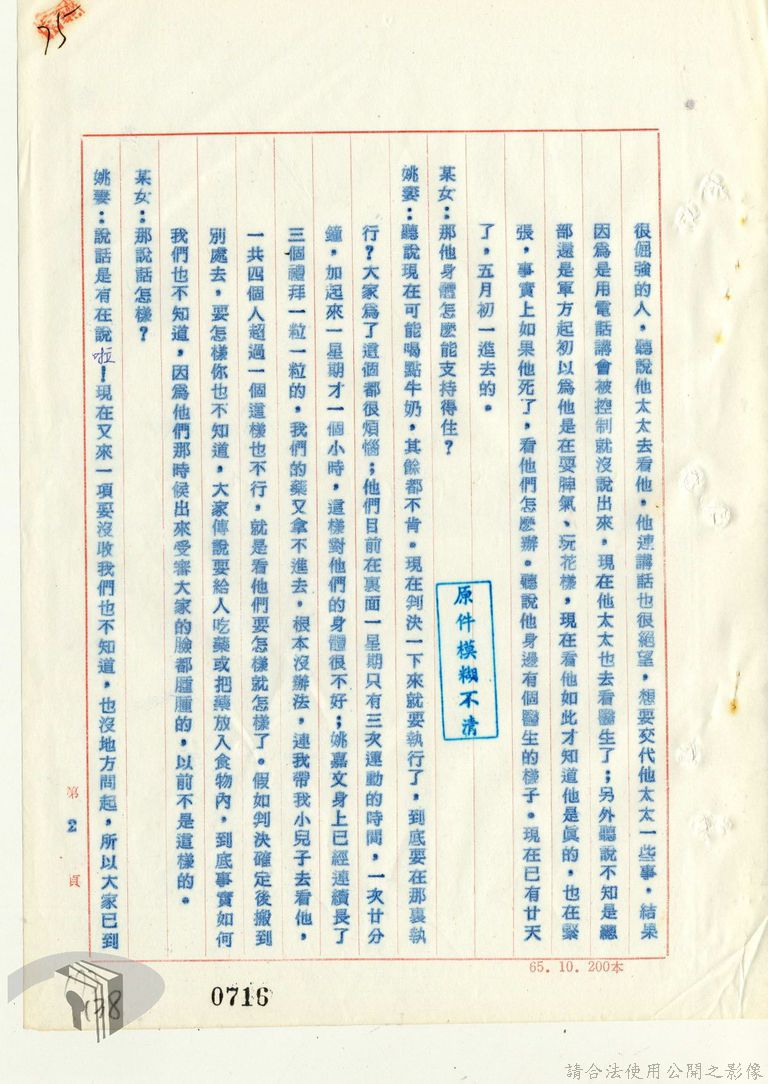 75
很倔強的人,聽說他太太去看他,他連講話也很絕望,想要交代他太太一些事,結果
因為是用電話講會被控制就沒說出來,現在他太太也去看醫生了;另外聽說不知是總
部還是軍方起初以為他是在耍脾氣、玩花樣,現在看他如此才知道他是眞的,也在緊
張,事實上如果他死了,看他們怎麼辦。聽說他身邊有個醫生的樣子。現在已有廿天
了,五月初一進去的。
某女:那他身體怎麼能支持得住?
姚妻:聽說現在可能喝點牛奶,其餘都不肯。現在判決一下來就要執行了,到底要在那裏執
行?大家為了這個都很煩惱;他們目前在裏面一星期只有三次運動的時間,一次廿分
鐘,加起來一星期才一個小時,這樣對他們的身體很不好;姚嘉文身上已經連續長了
三個禮拜一粒一粒的,我們的藥又拿不進去,根本沒辦法,連我帶我小兒子去看他,
一共四個人超過一個這樣也不行,就是看他們要怎樣就怎樣了。假如判決確定後搬到
別處去,要怎樣你也不知道,大家傳說要給人吃藥或把藥放入食物內,到底事實如何
我們也不知道,因為他們那時候出來受審大家的臉都腫腫的,以前不是這樣的。
某女:那說話怎樣?
姚妻:說話是有在說啦!現在又來一項要沒收我們也不知道,也沒地方問起,所以大家已到
原件模糊不清
第2頁
65.10.200本
138
0716
請合法使用公開之影像